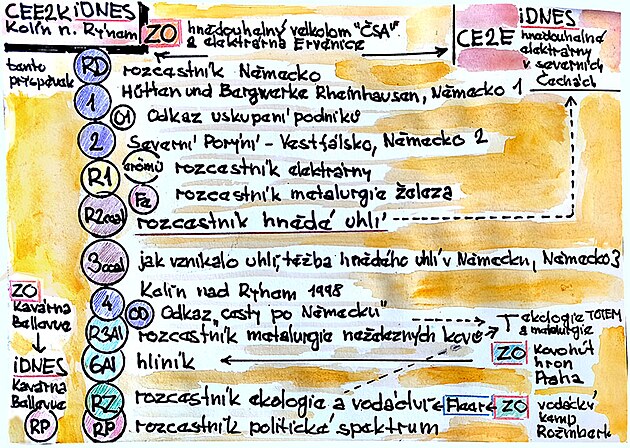 CEE2K iDNES
Kolín n. Rýnem
ZO hnědouhelný velkolom "ČSA"
a elektrárna Ervěnice
iDNES
CE2E hnědouhelné
elektrárny
v severních
Čechách
tento
příspěvek
RD rozcestník Německo
1 Hütten und Bergwerke Rheinhausen, Německo 1
O1 Odkaz uskupení podniků
2 Severní Porýní - Vestfálsko, Německo 2
R1 rozcestník elektrárny
Fe rozcestník metalurgie železa
R2coal rozcestník hnědé uhlí
3coal jak vznikalo uhlí, těžba hnědého uhlí v Německu, Německo 3
4 Kolín nad Rýnem 1998
OD Odkaz "cesty po Německu"
T ekologie TOTEM
a metalurgie
R3Al rozcestník metalurgie neželezných kovů
6Al hliník
ZO Kovohutě
Praha
RZ rozcestník ekologie a vodáctví
ZO vodácký
kemp
Rožmberk
RP rozcestník politické spektrum
ZO
Kavárna
Bellevue
iDNES
Kavárna
Bellevue
RP